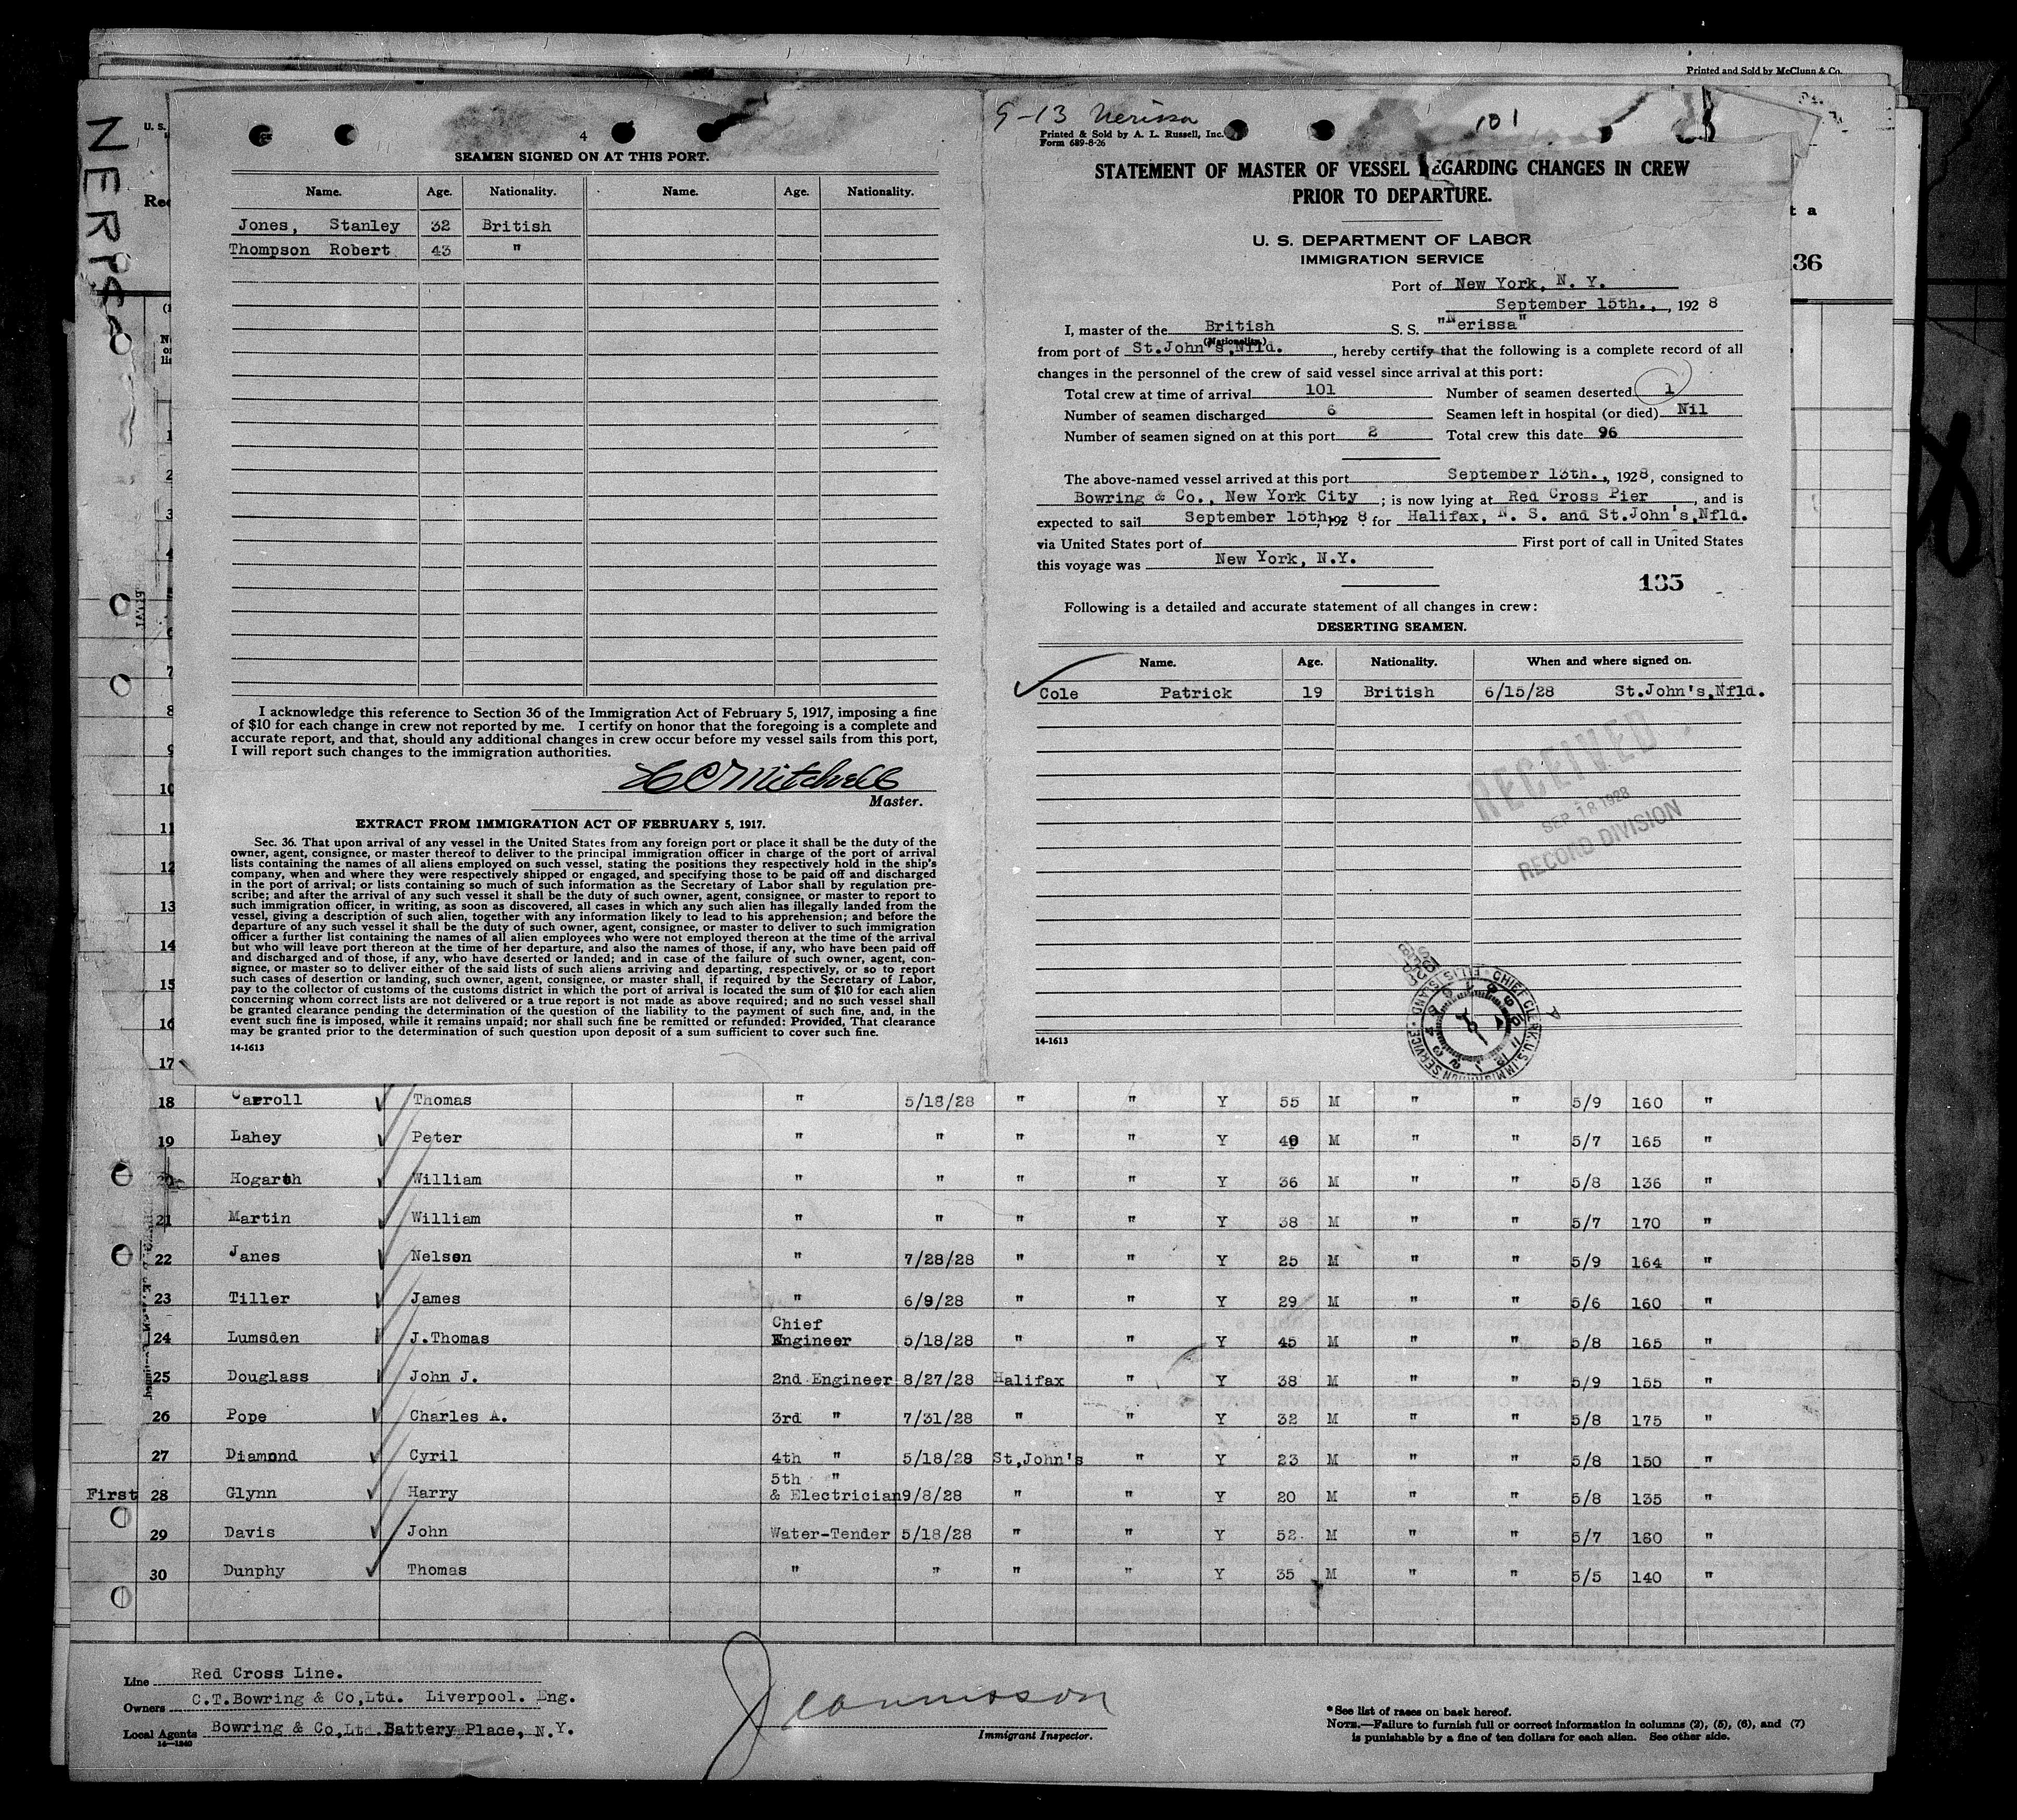 Printed and Sold by McClunn & Co.
NERISSA
U. S.
4
SEAMEN SIGNED ON AT THIS PORT.
Name. Age. Nationality. Name. Age. Nationality.
Jones, Stanley 32 British
Thompson Robert 43 "
I acknowledge this reference to Section 36 of the Immigration Act of February 5, 1917, imposing a fine
of $10 for each change in crew not reported by me. I certify on honor that the foregoing is a complete and
accurate report, and that, should any additional changes in crew occur before my vessel sails from this port,
I will report such changes to the immigration authorities.
Mitchell
Master.
EXTRACT FROM IMMIGRATION ACT OF FEBRUARY 5, 1917.
Sec. 36. That upon arrival of any vessel in the United States from any foreign port or place it shall be the duty of the
owner, agent, consignee, or master thereof to deliver to the principal immigration officer in charge of the port of arrival
lists containing the names of all aliens employed on such vessel, stating the positions they respectively hold in the ship's
company, when and where they were respectively shipped or engaged, and specifying those to be paid off and discharged
in the port of arrival; or lists containing so much of such information as the Secretary of Labor shall by regulation pre-
scribe; and after the arrival of any such vessel it shall be the duty of such owner, agent, consignee, or master to report to
such immigration officer, in writing, as soon as discovered, all cases in which any such alien has illegally landed from the
vessel, giving a description of such alien, together with any information likely to lead to his apprehension; and before the
departure of any such vessel it shall be the duty of such owner, agent, consignee, or master to deliver to such immigration
officer a further list containing the names of all alien employees who were not employed thereon at the time of the arrival
but who will leave port thereon at the time of her departure, and also the names of those, if any, who have been paid off
and discharged and of those, if any, who have deserted or landed; and in case of the failure of such owner, agent, con-
signee, or master so to deliver either of the said lists of such aliens arriving and departing, respectively, or so to report
such cases of desertion or landing, such owner, agent, consignee, or master shall, if required by the Secretary of Labor,
pay to the collector of customs of the customs district in which the port of arrival is located the sum of $10 for each alien
concerning whom correct lists are not delivered or a true report is not made as above required; and no such vessel shall
be granted clearance pending the determination of the question of the liability to the payment of such fine, and, in the
event such fine is imposed, while it remains unpaid; nor shall such fine be remitted or refunded: Provided, That clearance
may be granted prior to the determination of such question upon deposit of a sum sufficient to cover such fine.
14-1613
9-13 Nerissa
101
Printed & Sold by A. L. Russell, Inc.
Form 689-8-26
STATEMENT OF MASTER OF VESSEL REGARDING CHANGES IN CREW
PRIOR TO DEPARTURE.
U. S. DEPARTMENT OF LABOR
IMMIGRATION SERVICE
Port of New York, N. Y.
September 15th., , 192 8
I, master of the British S. S. "Nerissa"
(Nationality.)
from port of St.John's,Nfld. , hereby certify that the following is a complete record of all
changes in the personnel of the crew of said vessel since arrival at this port:
Total crew at time of arrival 101 Number of seamen deserted 1
Number of seamen discharged 6 Seamen left in hospital (or died) Nil
Number of seamen signed on at this port 2 Total crew this date 96
The above-named vessel arrived at this port September 13th., , 1928, consigned to
Bowring & Co., New York City ; is now lying at Red Cross Pier , and is
expected to sail September 15th, 192 8 for Halifax, N. S. and St.John's,Nfld.
via United States port of First port of call in United States
this voyage was New York, N.Y.
135
Following is a detailed and accurate statement of all changes in crew:
DESERTING SEAMEN.
Name. Age. Nationality. When and where signed on.
Cole Patrick 19 British 6/15/28 St.John's,Nfld.
RECEIVED
SEP 18 1928
RECORD DIVISION
CHIEF CLERK. U.S. IMMIGRATION SERVICE · ELLIS ISLAND
14-1613
t a
36
1
2
3
4
7
8
9
10
11
12
13
14
15
16
17
18 Carroll Thomas " 5/18/28 " " Y 55 M " " 5/9 160 "
19 Lahey Peter " " " " Y 40 M " " 5/7 165 "
20 Hogarth William " " " " Y 36 M " " 5/8 136 "
21 Martin William " " " " Y 38 M " " 5/7 170 "
22 Janes Nelson " 7/28/28 " " Y 25 M " " 5/9 164 "
23 Tiller James " 6/9/28 " " Y 29 M " " 5/6 160 "
24 Lumsden J.Thomas Chief Engineer 5/18/28 " " Y 45 M " " 5/8 165 "
25 Douglass John J. 2nd Engineer 8/27/28 Halifax " Y 38 M " " 5/9 155 "
26 Pope Charles A. 3rd " 7/31/28 " " Y 32 M " " 5/8 175 "
27 Diamond Cyril 4th " 5/18/28 St.John's " Y 23 M " " 5/8 150 "
First 28 Glynn Harry 5th " & Electrician 9/8/28 " " Y 20 M " " 5/8 135 "
29 Davis John Water-Tender 5/18/28 " " Y 52 M " " 5/7 180 "
30 Dunphy Thomas " " " " Y 35 M " " 5/5 140 "
Line Red Cross Line.
Owners C.T.Bowring & Co,Ltd. Liverpool. Eng.
Local Agents Bowring & Co,Ltd.Battery Place, N.Y.
14-1240
Immigrant Inspector.
*See list of races on back hereof.
NOTE.—Failure to furnish full or correct information in columns (2), (5), (6), and (7)
is punishable by a fine of ten dollars for each alien. See other side.